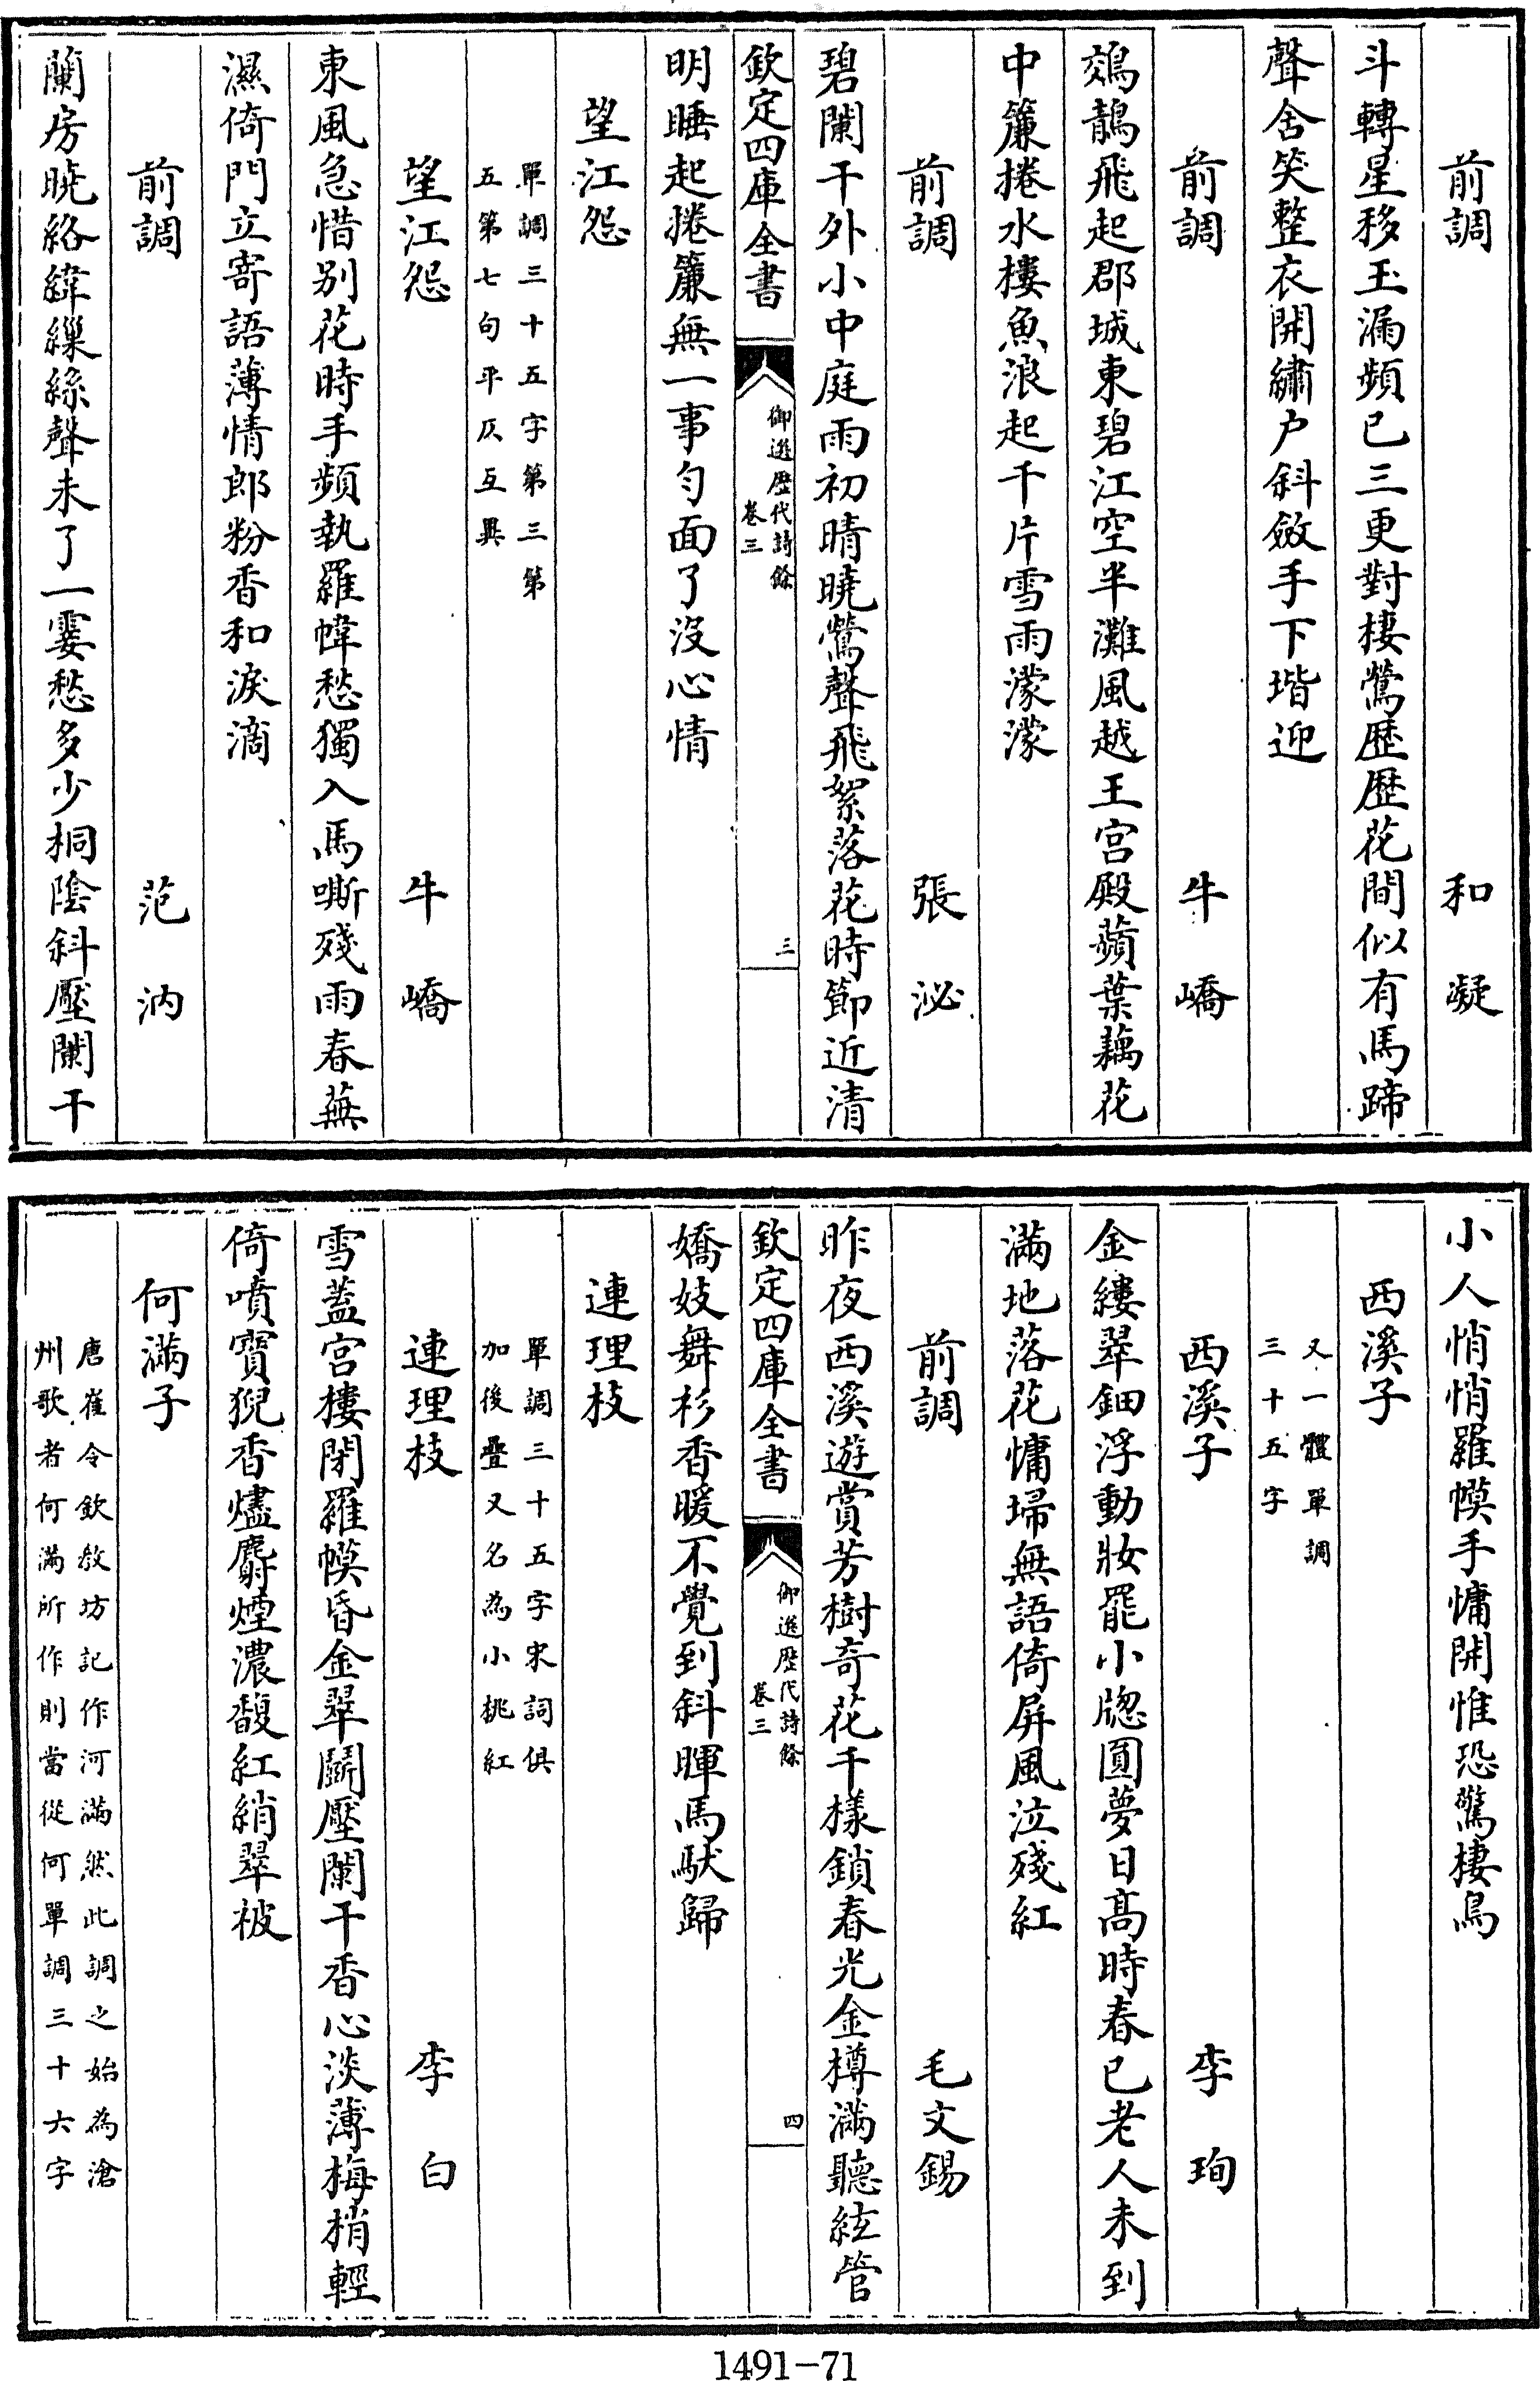 前調　和凝
斗轉星移玉漏頻已三更對棲鶯歴歴花間似有馬蹄
聲含笑整衣開繡户斜斂手下堦迎
前調　牛嶠
鵁鶄飛起郡城東碧江空半灘風越王宫殿蘋葉藕花
中簾捲水樓魚浪起千片雪雨濛濛
前調　張泌
碧闌干外小中庭雨初晴曉鶯聲飛絮落花時節近清
欽定四庫全書
御選歴代詩餘
卷三
三
明睡起捲簾無一事勻面了沒心情
望江怨
單調三十五字第三第
五第七句平仄互異
望江怨　牛嶠
東風急惜别花時手頻執羅幃愁獨入馬嘶殘雨春蕪
濕倚門立寄語薄情郎粉香和淚滴
前調　范汭
蘭房曉絡緯繅絲聲未了一霎愁多少桐陰斜壓闌干
小人悄悄羅幙手慵開惟恐驚棲鳥
西溪子
又一體單調
三十五字
西溪子　李珣
金縷翠鈿浮動妝罷小牕圓夢日髙時春已老人未到
滿地落花慵埽無語倚屏風泣殘紅
前調　毛文錫
昨夜西溪遊賞芳樹奇花千樣鎖春光金樽滿聽絃管
欽定四庫全書
御選歴代詩餘
卷三
四
嬌妓舞衫香暖不覺到斜暉馬䭾歸
連理枝
單調三十五字宋詞俱
加後疊又名為小桃紅
連理枝　李白
雪葢宫樓閉羅幙昏金翠鬬壓闌干香心淡薄梅梢輕
倚噴寶猊香燼麝煙濃馥紅綃翠被
何滿子
唐崔令欽教坊記作河滿然此調之始為滄
州歌者何滿所作則當從何單調三十六字
1491-71